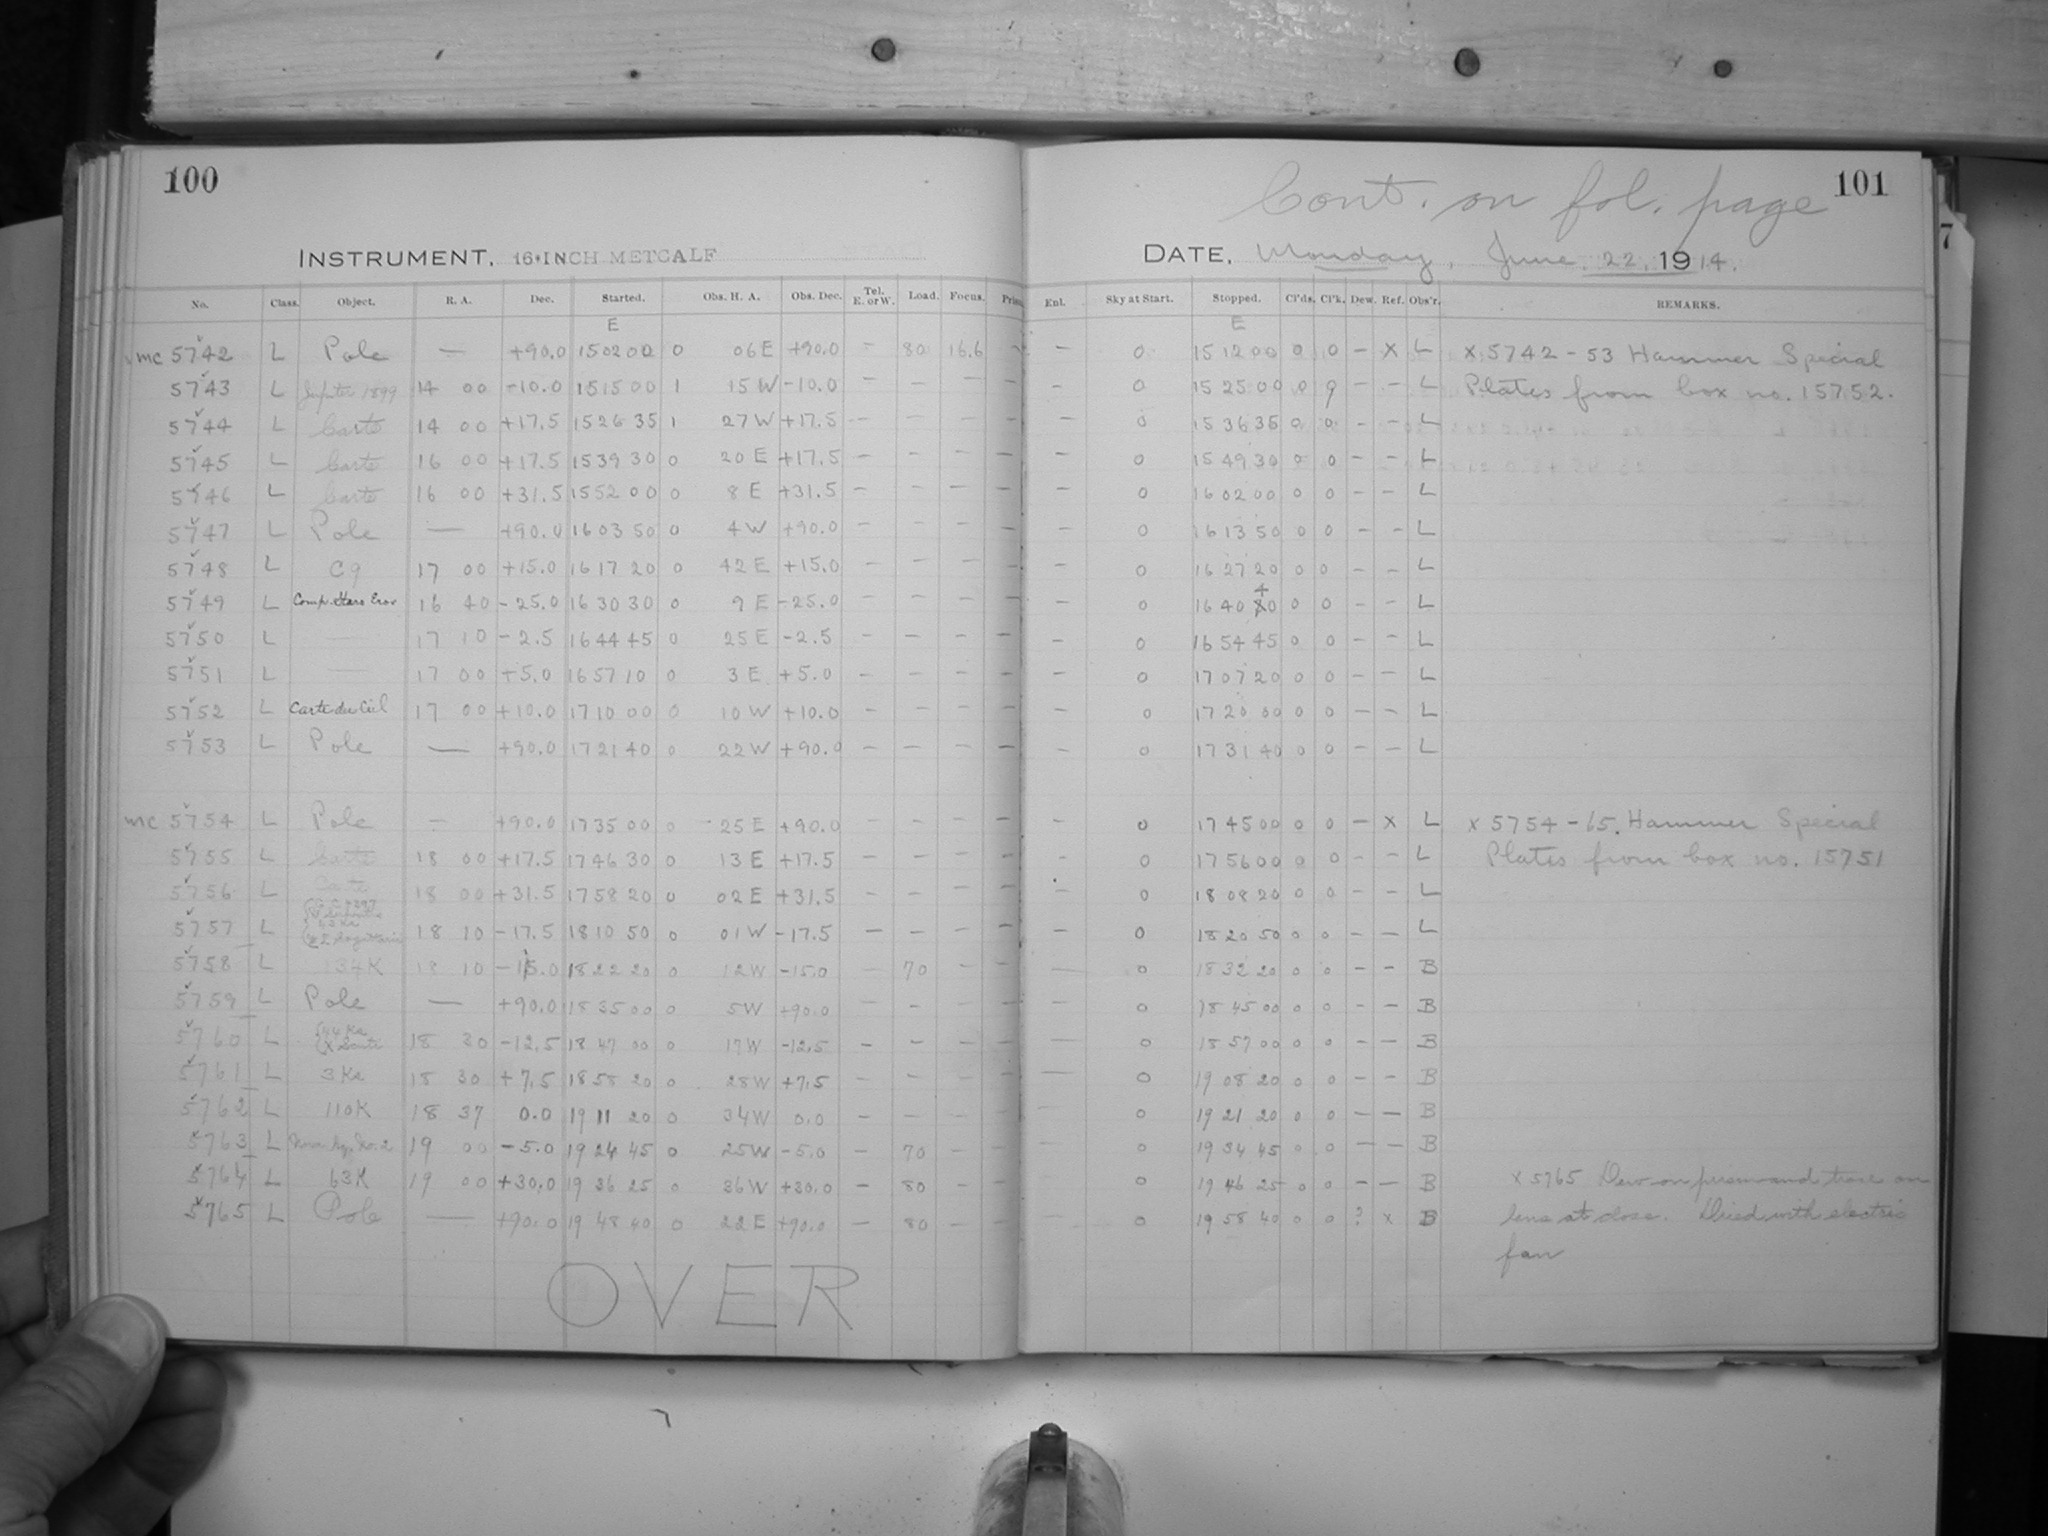 100
INSTRUMENT, 16-INCH METCALF
No. Class. Object. R. A. Dec. Started. Obs. H. A. Obs. Dec. Tel. E. or W. Load. Focus.
E
mc 5742 L Pole — +90.0 15 02 00 0 06 E +90.0 - 80 16.6 -
5743 L Jupiter 1899 14 00 -10.0 15 15 00 1 15 W -10.0 - - - -
5744 L Carte 14 00 +17.5 15 26 35 1 27 W +17.5 - - - -
5745 L Carte 16 00 +17.5 15 39 30 0 20 E +17.5 - - - -
5746 L Carte 16 00 +31.5 15 52 00 0 8 E +31.5 - - - -
5747 L Pole — +90.0 16 03 50 0 4 W +90.0 - - - -
5748 L C9 17 00 +15.0 16 17 20 0 42 E +15.0 - - - -
5749 L Comp. Stars Eros 16 40 -25.0 16 30 30 0 9 E -25.0 - - - -
5750 L — 17 10 -2.5 16 44 45 0 25 E -2.5 - - - -
5751 L — 17 00 +5.0 16 57 10 0 3 E +5.0 - - - -
5752 L Carte du Ciel 17 00 +10.0 17 10 00 0 10 W +10.0 - - - -
5753 L Pole — +90.0 17 21 40 0 22 W +90.0 - - - -
mc 5754 L Pole — +90.0 17 35 00 0 25 E +90.0 - - - -
5755 L Carte 18 00 +17.5 17 46 30 0 13 E +17.5 - - - -
5756 L Carte 18 00 +31.5 17 58 20 0 02 E +31.5 - - - -
5757 L 18 10 -17.5 18 10 50 0 01 W -17.5 - - - -
5758 L 134K 18 10 -15.0 18 22 20 0 12 W -15.0 - 70 - -
5759 L Pole — +90.0 18 35 00 0 5 W +90.0 - - - -
5760 L 44 Ka 18 30 -12.5 18 47 00 0 17 W -12.5 - - - -
5761 L 3 Ka 18 30 +7.5 18 58 20 0 28 W +7.5 - - - -
5762 L 110K 18 37 0.0 19 11 20 0 34 W 0.0 - - - -
5763 L Nova Aq. No. 2 19 00 -5.0 19 24 45 0 25 W -5.0 - 70 - -
5764 L 63K 19 00 +30.0 19 36 25 0 36 W +30.0 - 80 - -
5765 L Pole — +90.0 19 48 40 0 22 E +90.0 - 80 - -
OVER
Cont. on fol. page 101
DATE, Monday, June 22, 1914.
Enl. Sky at Start. Stopped. Cl'ds. Cl'k. Dew. Ref. Obs'r. REMARKS.
E
- 0 15 12 00 0 0 - X L x 5742-53 Hammer Special
- 0 15 25 00 0 9 - - L Plates from box no. 15752.
- 0 15 36 35 0 0 - - L
- 0 15 49 30 0 0 - - L
- 0 16 02 00 0 0 - - L
- 0 16 13 50 0 0 - - L
- 0 16 27 20 0 0 - - L
- 0 16 40 40 0 0 - - L
- 0 16 54 45 0 0 - - L
- 0 17 07 20 0 0 - - L
- 0 17 20 00 0 0 - - L
- 0 17 31 40 0 0 - - L
- 0 17 45 00 0 0 - X L x 5754-65. Hammer Special
- 0 17 56 00 0 0 - - L Plates from box no. 15751
- 0 18 08 20 0 0 - - L
- 0 18 20 50 0 0 - - L
- 0 18 32 20 0 0 - - B
- 0 18 45 00 0 0 - - B
- 0 18 57 00 0 0 - - B
- 0 19 08 20 0 0 - - B
- 0 19 21 20 0 0 - - B
- 0 19 34 45 0 0 - - B
- 0 19 46 25 0 0 - - B x 5765 Dew on prism and trace on
- 0 19 58 40 0 0 ? x B lens at close. Dried with electric
fan